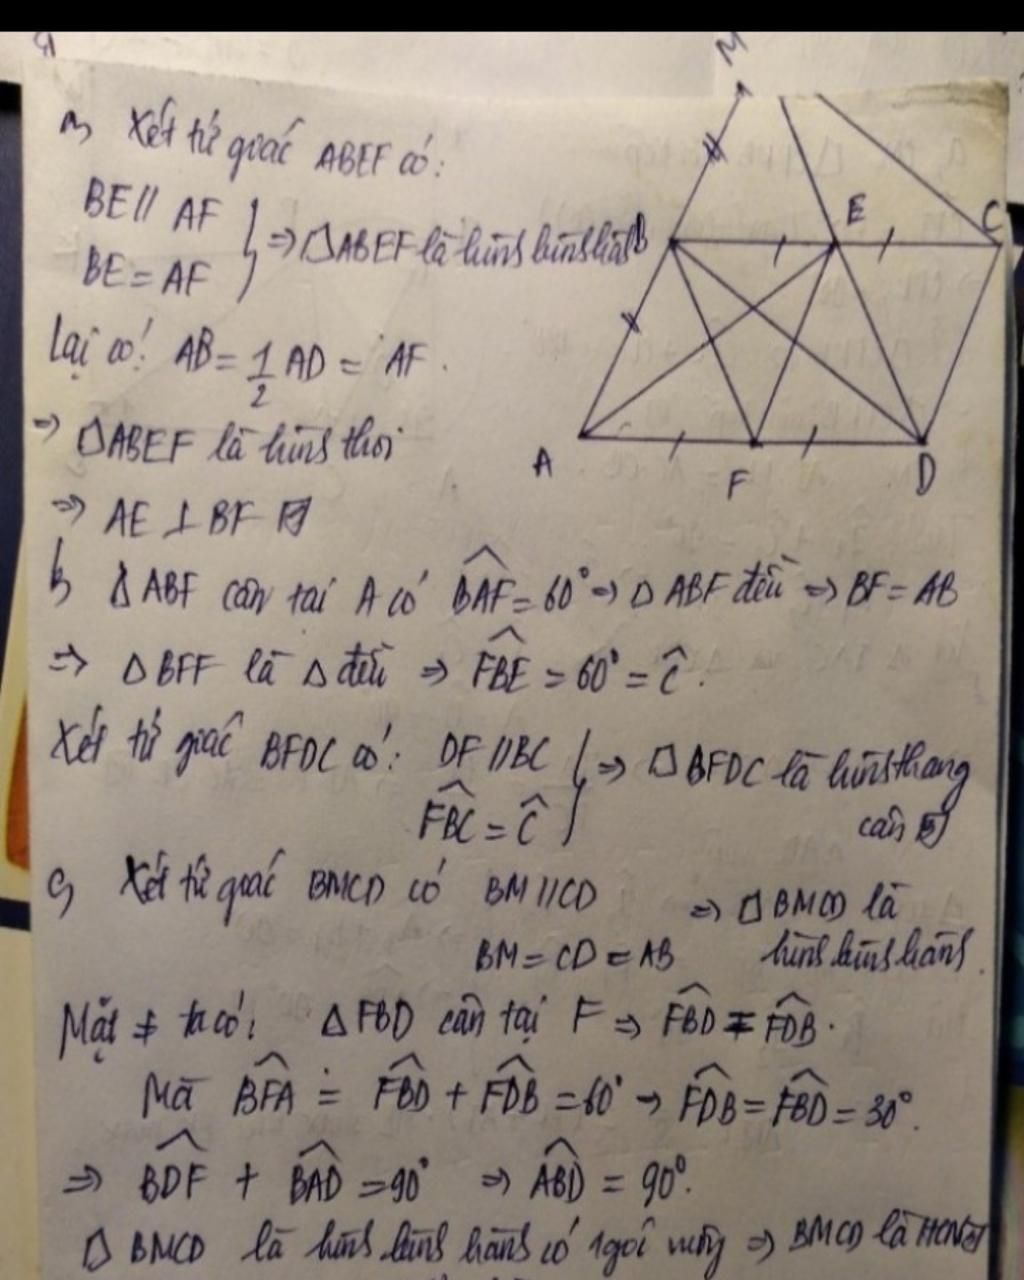 a, Xét tứ giác ABEF có:
BE // AF
BE = AF
⇒ □ABEF là hình bình hành
Lại có: AB = 1/2 AD = AF.
⇒ □ABEF là hình thoi
⇒ AE ⊥ BF
b, Δ ABF cân tại A có BAF^ = 60° ⇒ Δ ABF đều ⇒ BF = AB
⇒ Δ BFF là Δ đều ⇒ FBE^ = 60° = C^.
Xét tứ giác BFDC có: DF // BC
FBC^ = C^
⇒ □ BFDC là hình thang
cân
c, Xét tứ giác BMCD có BM // CD
BM = CD = AB
⇒ □ BMCD là
hình bình hành.
Mặt ≠ ta có: Δ FBD cân tại F ⇒ FBD^ = FDB^.
Mà BFA^ = FBD^ + FDB^ = 60° → FDB^ = FBD^ = 30°.
⇒ BDF^ + BAD^ = 90° ⇒ ABD^ = 90°.
□ BMCD là hình bình hành có 1 góc vuông ⇒ BMCD là HCN
M
B
E
C
A
F
D